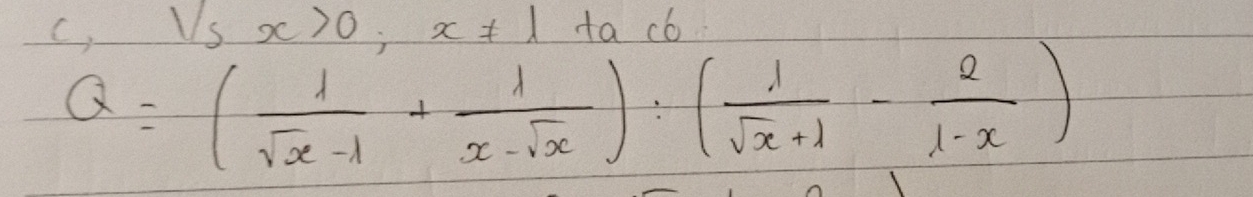 c, Vs x > 0; x ≠ 1 ta có
Q = (1/(√x - 1) + 1/(x - √x)) : (1/(√x + 1) - 2/(1 - x))